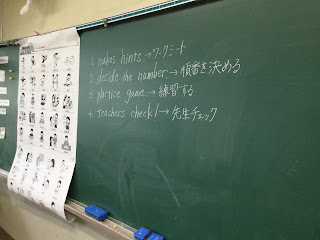 1. makes hints→ワークシート
2. decide the number→順番を決める
3. plactice game.→練習する
4. teachers check!→先生チェック